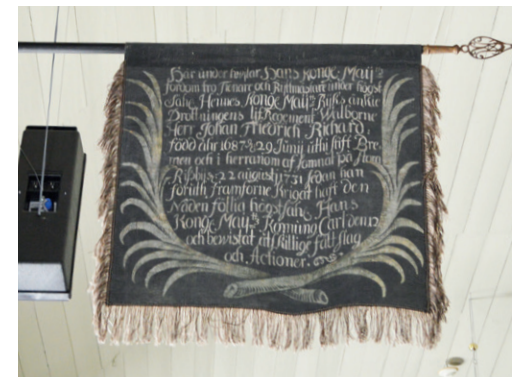 Här under hwilar Hans Kongl. Maij:tz
fordom tro Tienare och Ryttmästare under högst
Sahl. Hennes Kongl Maij:tz Rijks änkie
Drottningens lif Regement Wälborne
Herr Johan Friedrich Richard,
född åhr 1687 d. 29 Junij uthi stift Bre-
men och i herranom afsomnat på
Ribby d. 22 augusty 1731 sedan han
föruth framförne Kriget haft den
Nåden föllia högstsahl. Hans
Kongl. Maij:tz Konung Carl den 12
och bevistat åtskillige fält slag
och Actioner.